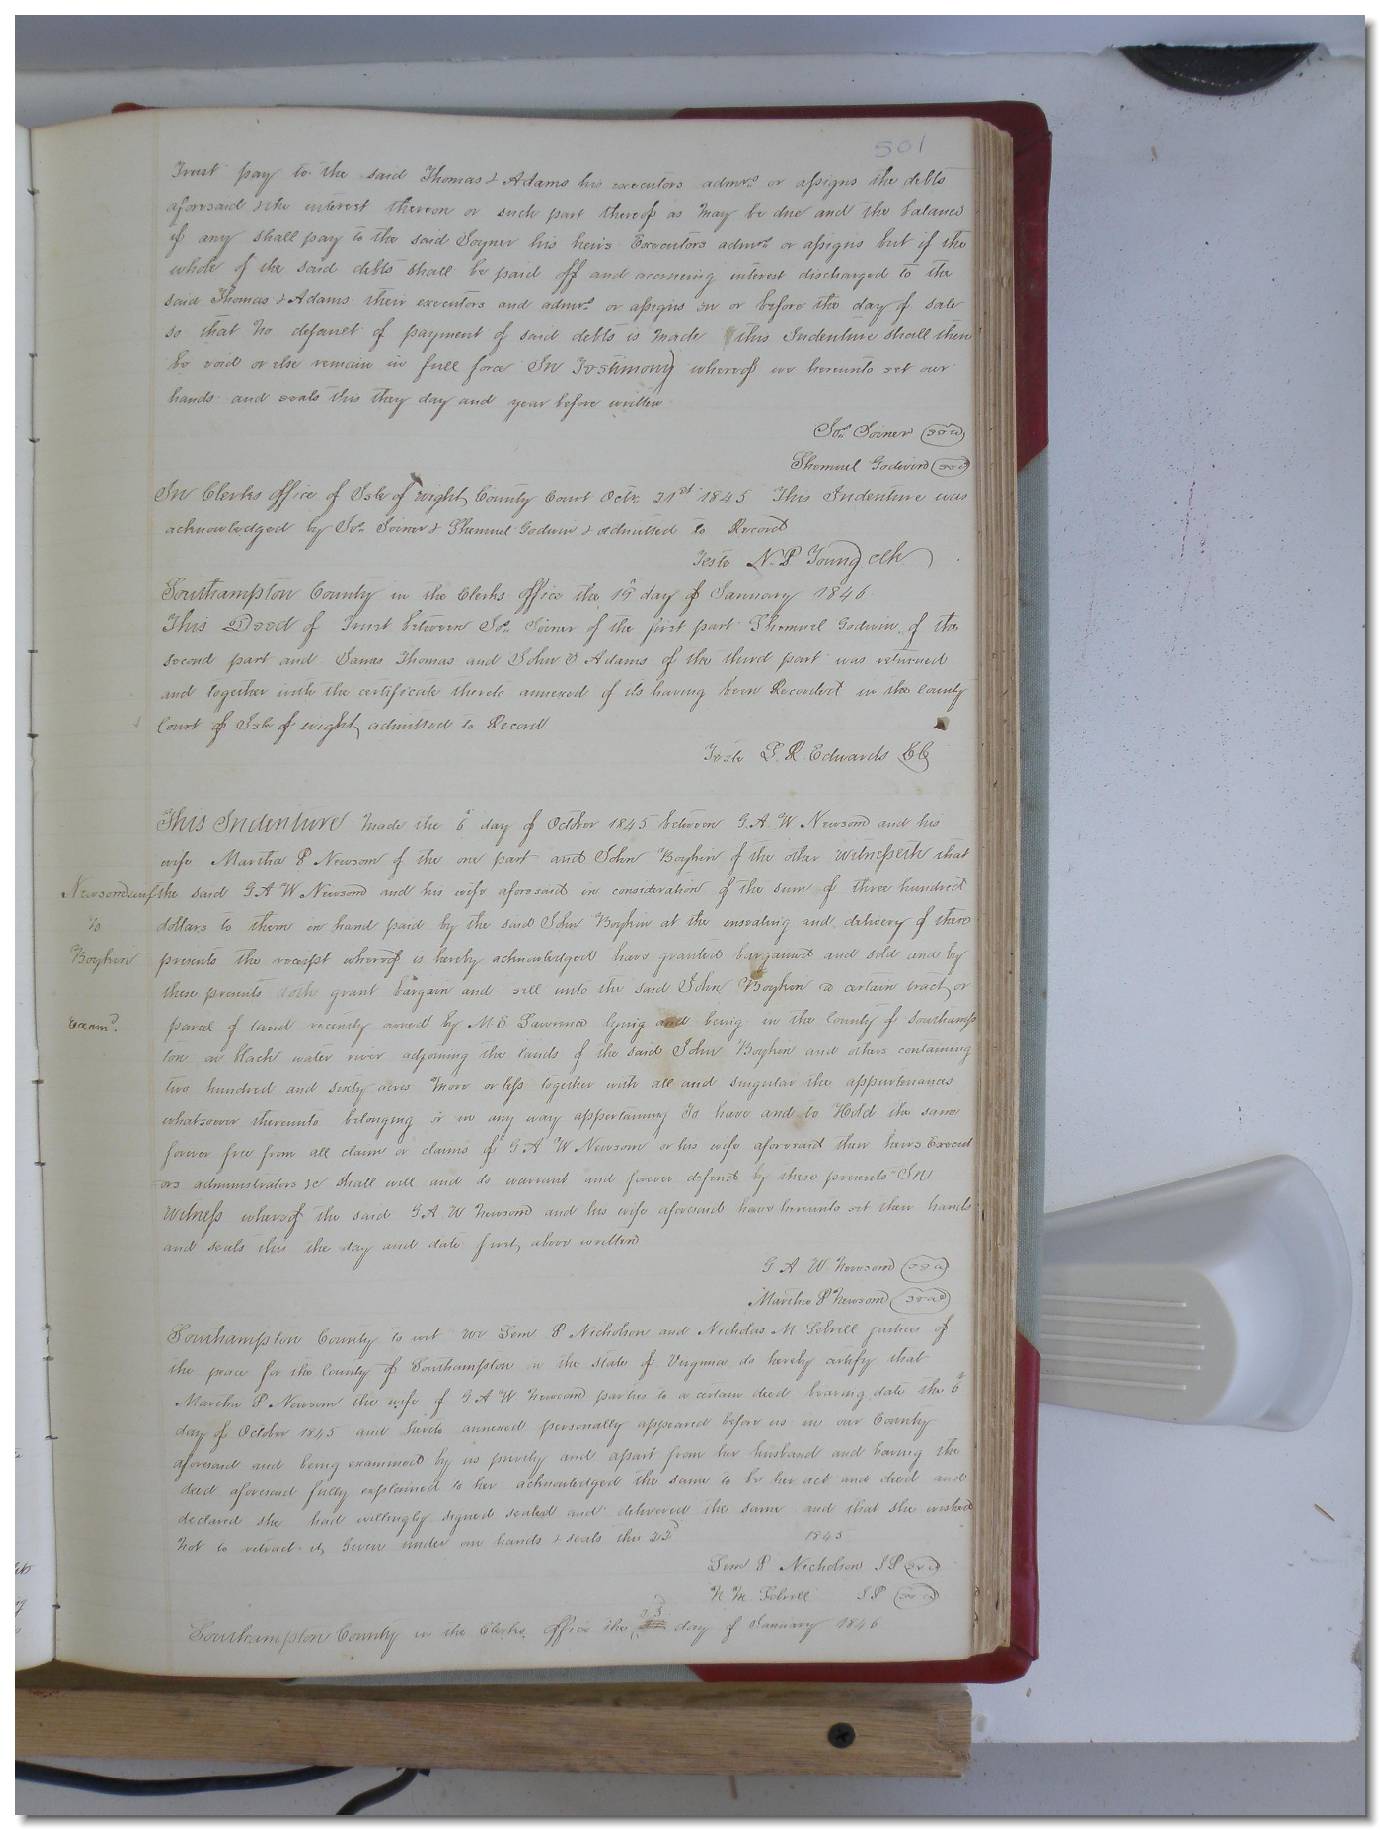 501
Trust pay to the said Thomas & Adams his executors admrs or assigns the debts
aforesaid & the interest thereon or such part thereof as may be due and the balance
if any shall pay to the said Joyner his heirs Executors admrs or assigns but if the
whole of the said debts shall be paid off and accrueing interest discharged to the
said Thomas & Adams their executors and admrs or assigns on or before the day of sale
so that no default of payment of said debts is made this Indenture shall then
be void or else remain in full force In Testimony whereof we hereunto set our
hands and seals this they day and year before written
Jos. Joiner (seal)
Shemuel Godwin (seal)
In Clerks office of Isle of wight County Court Octr 21st 1845 This Indenture was
acknowledged by Jos. Joiner & Shemuel Godwin & admitted to Record
Teste N. P Young clk
Southampton County in the Clerks office the 19 day of January 1846
This Deed of Trust between Jos. Joiner of the first part Shemuel Godwin of the
second part and Thomas and John Adams of the third part was returned
and together with the certificate thereto annexed of its having been Recorded in the county
Court of Isle of wight admitted to Record
Teste L. R. Edwards CC
This Indenture made the 6th day of October 1845 between G. A. W Newsom and his
wife Martha P Newsom of the one part and John Boykin of the other Witnesseth that
Newsom & wife the said G A W Newsom and his wife aforesaid in consideration of the sum of three hundred
to dollars to them in hand paid by the said John Boykin at the ensealing and delivery of these
Boykin presents the receipt whereof is hereby acknowledged have granted bargained and sold and by
these presents doth grant bargain and sell unto the said John Boykin a certain tract or
Examd. parcel of land recently owned by M. S Lawrence lying and being in the County of Southamp
ton on black water river adjoining the lands of the said John Boykin and others containing
two hundred and sixty acres more or less together with all and singular the appurtenances
whatsoever thereunto belonging or in any way appertaining To have and to Hold the same
forever free from all claim or claims of G A W Newsom or his wife aforesaid their heirs Execut
ors administrators &c shall will and do warrant and forever defend by these presents In
Witness whereof the said G. A. W Newsom and his wife aforesaid have hereunto set their hands
and seals this the day and date first above written
G A W. Newsom (seal)
Martha P Newsom (seal)
Southampton County to wit We Lem P Nicholson and Nicholas M Sebrell justices of
the peace for the County of Southampton in the state of Virginia do hereby certify that
Martha P Newsom the wife of G A W Newsom parties to a certain deed bearing date the 6th
day of October 1845 and hereto annexed personally appeared before us in our County
aforesaid and being examined by us privily and apart from her husband and having the
deed aforesaid fully explained to her acknowledged the same to be her act and deed and
declared she had willingly signed sealed and delivered the same and that she wished
not to retract it Given under our hands & seals this 22d 1845
Lem P Nicholson J P (seal)
N M Sebrell J P (seal)
Southampton County in the Clerks office the day of January 1846